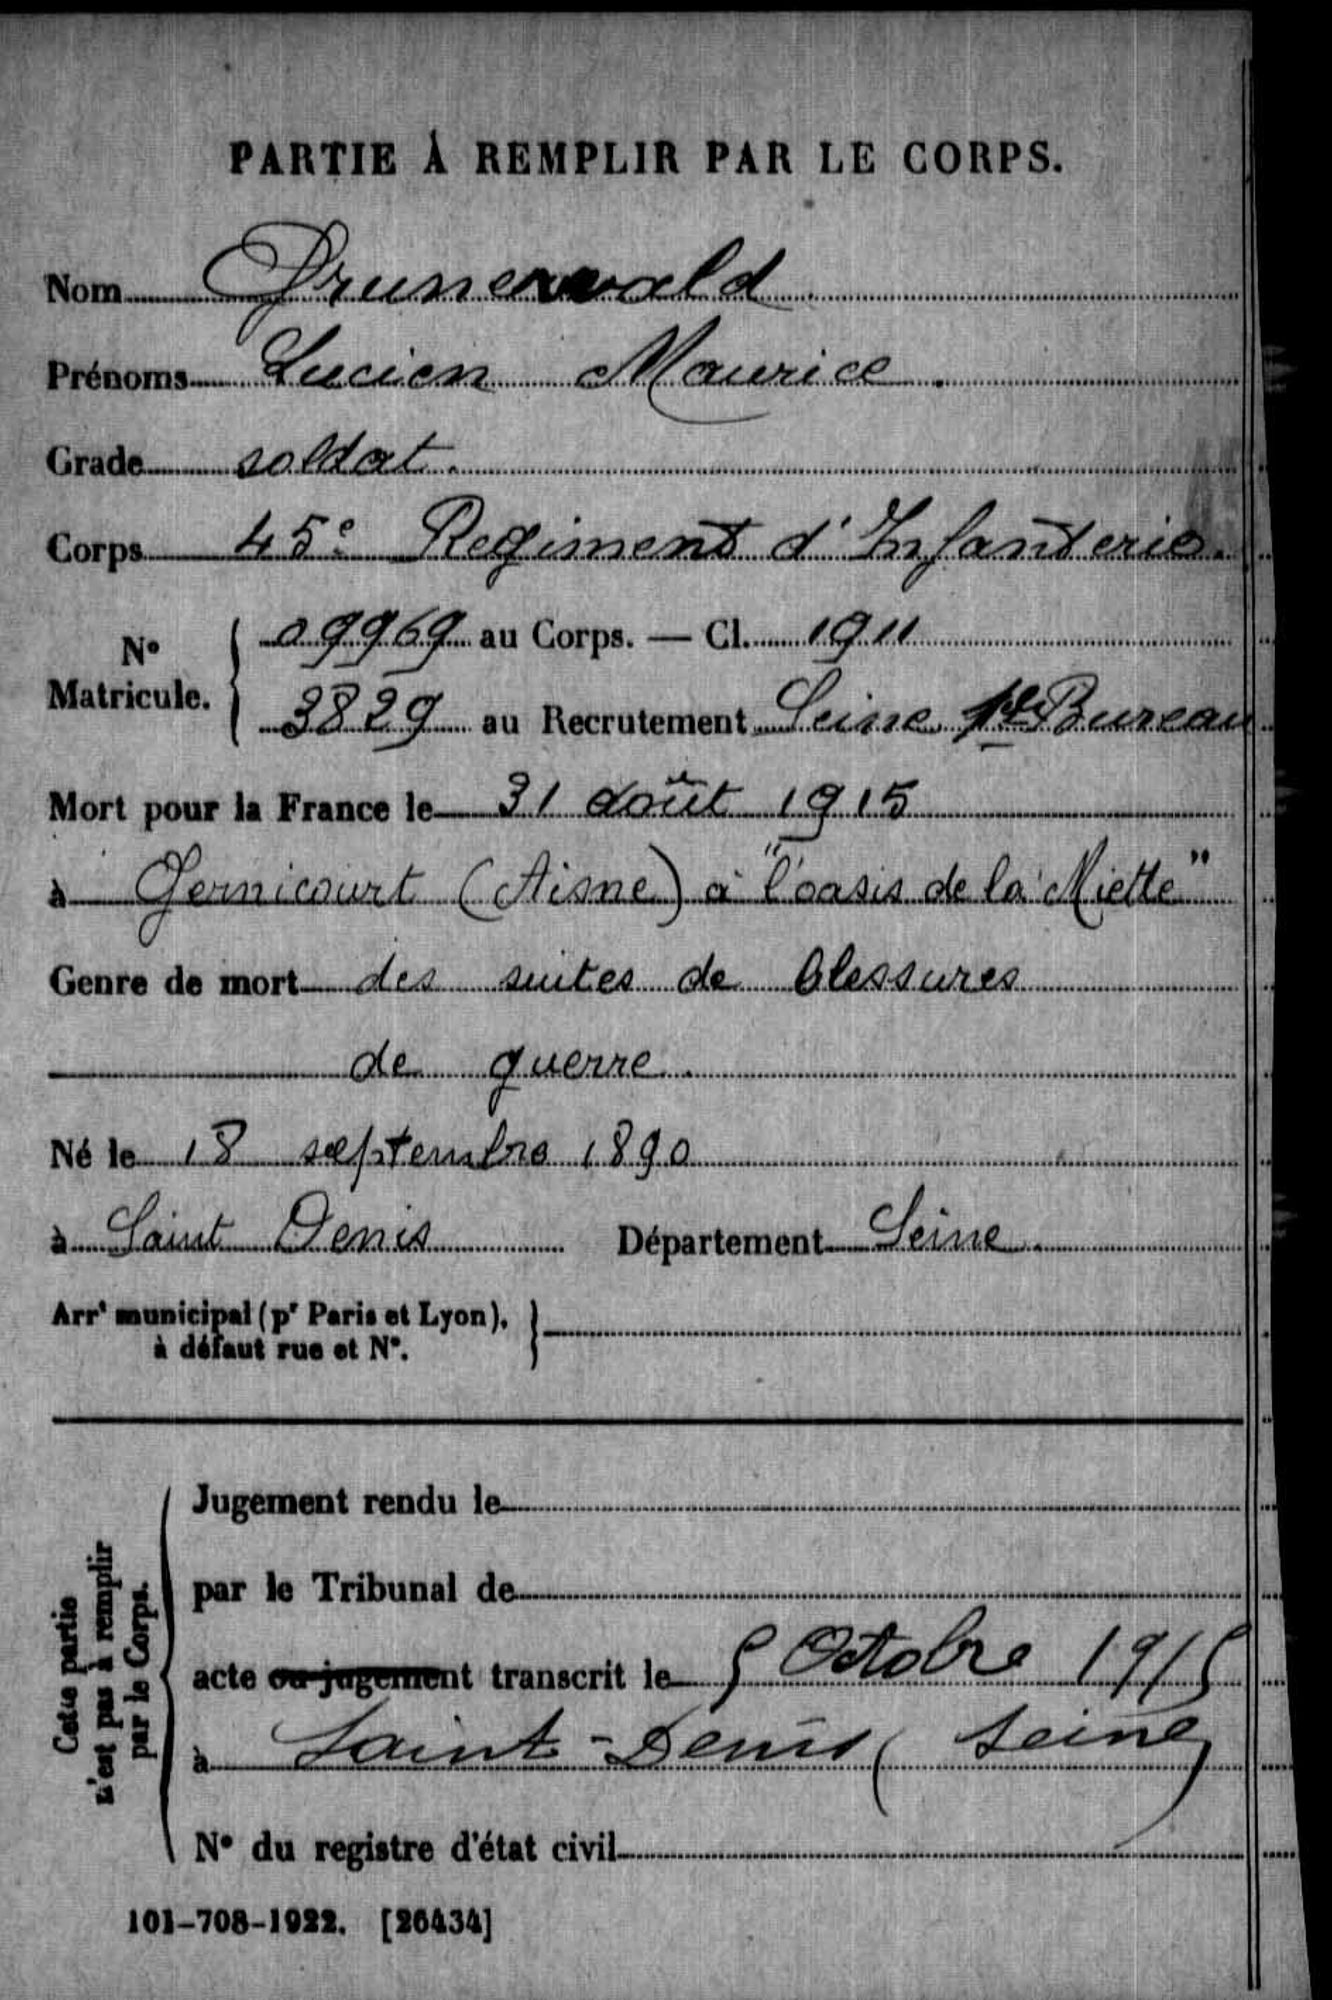 PARTIE À REMPLIR PAR LE CORPS.
Nom Grunenwald
Prénoms Lucien Maurice.
Grade soldat.
Corps 45e Regiment d'Infanterie.
No Matricule. { 09969 au Corps. — Cl. 1911
3829 au Recrutement Seine 1er Bureau
Mort pour la France le 31 août 1915
à Gernicourt (Aisne) à "l'oasis de la Miette"
Genre de mort des suites de blessures
de guerre.
Né le 18 septembre 1890
à Saint Denis Département Seine.
Arrt municipal (pr Paris et Lyon),
à défaut rue et No.
Cette partie
n'est pas à remplir
par le Corps.
Jugement rendu le
par le Tribunal de
acte ou jugement transcrit le 5 Octobre 1915
à Saint-Denis (Seine)
No du registre d'état civil
101-708-1922. [26434]